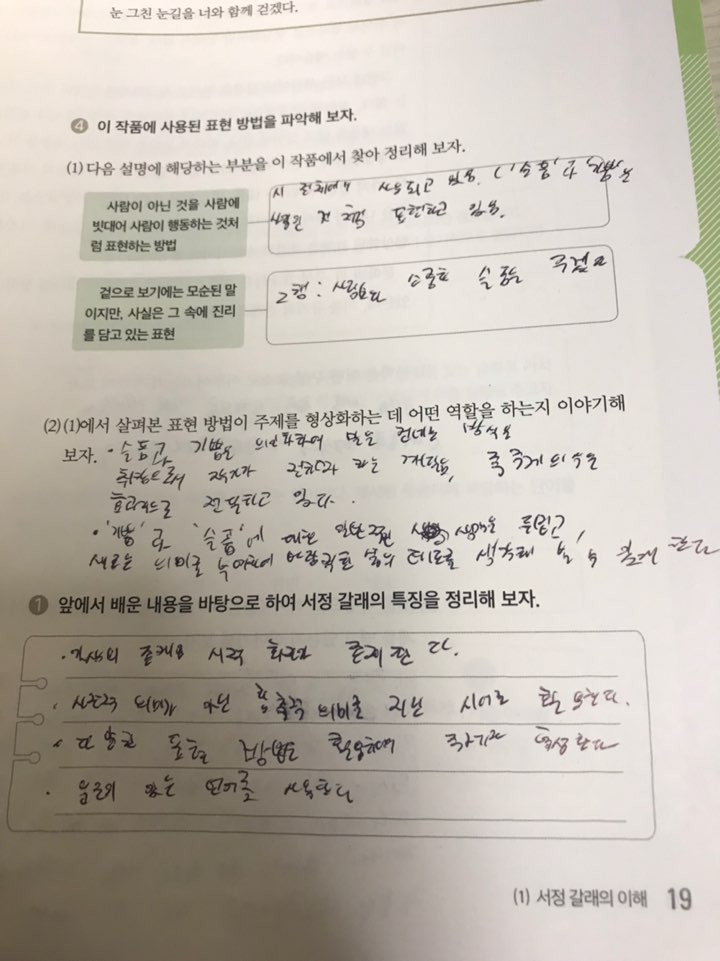 눈 그친 눈길을 너와 함께 걷겠다.
4 이 작품에 사용된 표현 방법을 파악해 보자.
(1) 다음 설명에 해당하는 부분을 이 작품에서 찾아 정리해 보자.
사람이 아닌 것을 사람에
빗대어 사람이 행동하는 것처
럼 표현하는 방법
시 전체에서 사용되고 있음. ('슬픔'과
표현하고 있음.
겉으로 보기에는 모순된 말
이지만, 사실은 그 속에 진리
를 담고 있는 표현
2행: 사랑보다 소중한 슬픔을
(2) (1)에서 살펴본 표현 방법이 주제를 형상화하는 데 어떤 역할을 하는지 이야기해
보자.
· 슬픔과 기쁨을 의인화하여 말을 건네는 방식을
취함으로써 독자가 즉 주제의식을
효과적으로 전달하고 있다.
· '기쁨'과 '슬픔'에 대한 생각을 뒤집고,
새로운 의미를 삶의 태도를 생각해 볼 수 있게 한다
1 앞에서 배운 내용을 바탕으로 하여 서정 갈래의 특징을 정리해 보자.
· 시적 화자가 존재한다.
· 사전적 의미가 아닌 함축적 의미를 지닌 시어를 활용한다.
· 다양한 표현 방법을 활용하여
· 운율이 있는 언어를 사용한다
(1) 서정 갈래의 이해 19